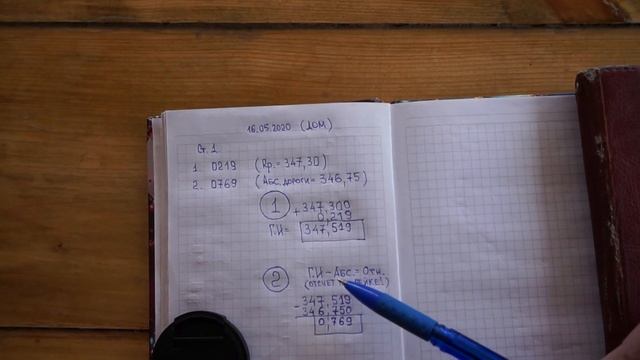 16.05.2020 (ДОМ)
Ст. 1
1. 0219 (Rр. = 347,30)
2. 0769 (Абс. дороги = 346,75)
1
+ 347,300
0,219
Г.И = 347,519
2
Г.И - Абс. = Отч.
(ОТСЧЕТ РЕЙКЕ!)
- 347,519
346,750
0,769